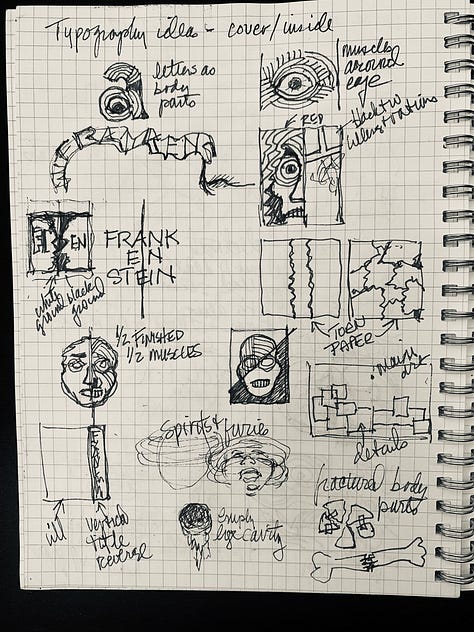 Typography idea - cover/inside
letters as
body
parts
muscles
around
eye
RED
FRANKENS
EN
FRANK
EIN
STEIN
white
ground
black
ground
TORN
PAPER
1/2 FINISHED
1/2 MUSCLES
main
details
Spirits & furies
ill
vertical
title
reverse
empty
eye cavity
fractured body
parts